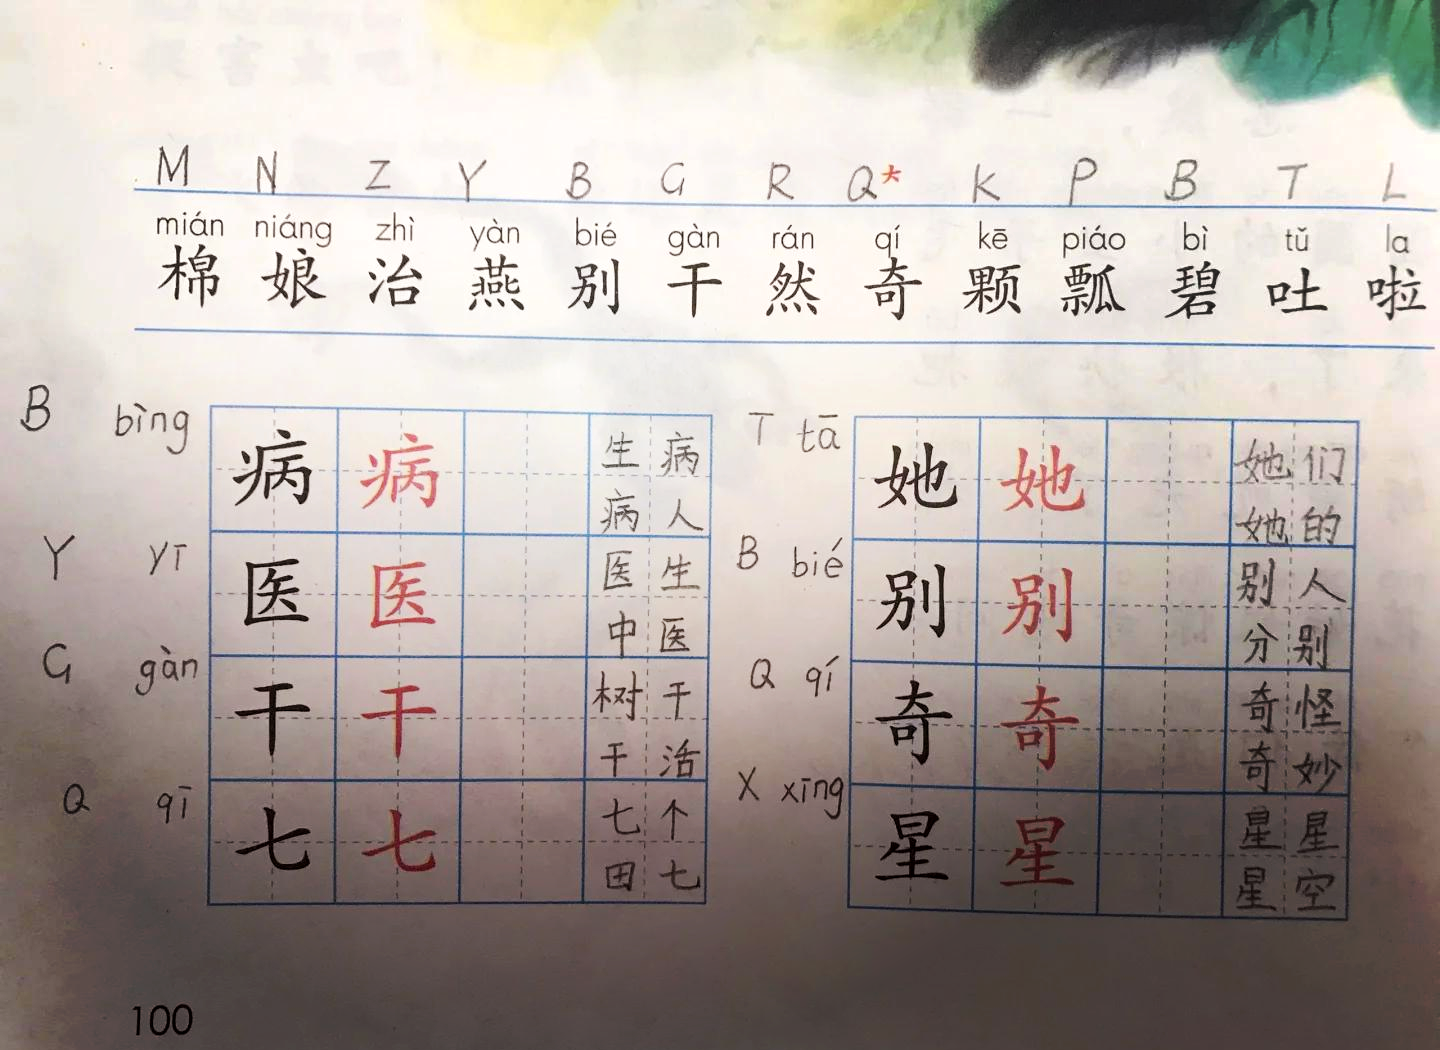 M N Z Y B G R Q* K P B T L
mián niáng zhì yàn bié gàn rán qí kē piáo bì tǔ la
棉 娘 治 燕 别 干 然 奇 颗 瓢 碧 吐 啦
B bìng 病 病 生病
病人
Y yī 医 医 医生
中医
G gàn 干 干 树干
干活
Q qī 七 七 七个
田七
T tā 她 她 她们
她的
B bié 别 别 别人
分别
Q qí 奇 奇 奇怪
奇妙
X xīng 星 星 星星
星空
100